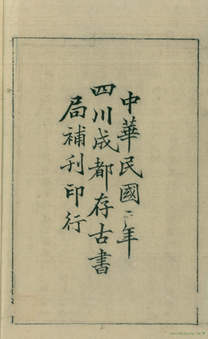 中華民國年
四川成都存古書
局補刊印行